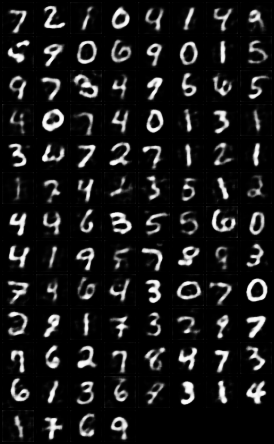 7 2 1 0 4 1 4 9
5 9 0 6 9 0 1 5
9 7 3 4 9 6 6 5
4 0 7 4 0 1 3 1
3 7 2 7 1 2 1
1 7 4 2 3 5 1 2
4 4 6 3 5 5 6 0
4 1 9 5 7 8 9 3
7 4 6 4 3 0 7 0
2 9 1 7 3 2 9 7
7 6 2 7 8 4 7 3
6 1 3 6 9 3 1 4
1 7 6 9